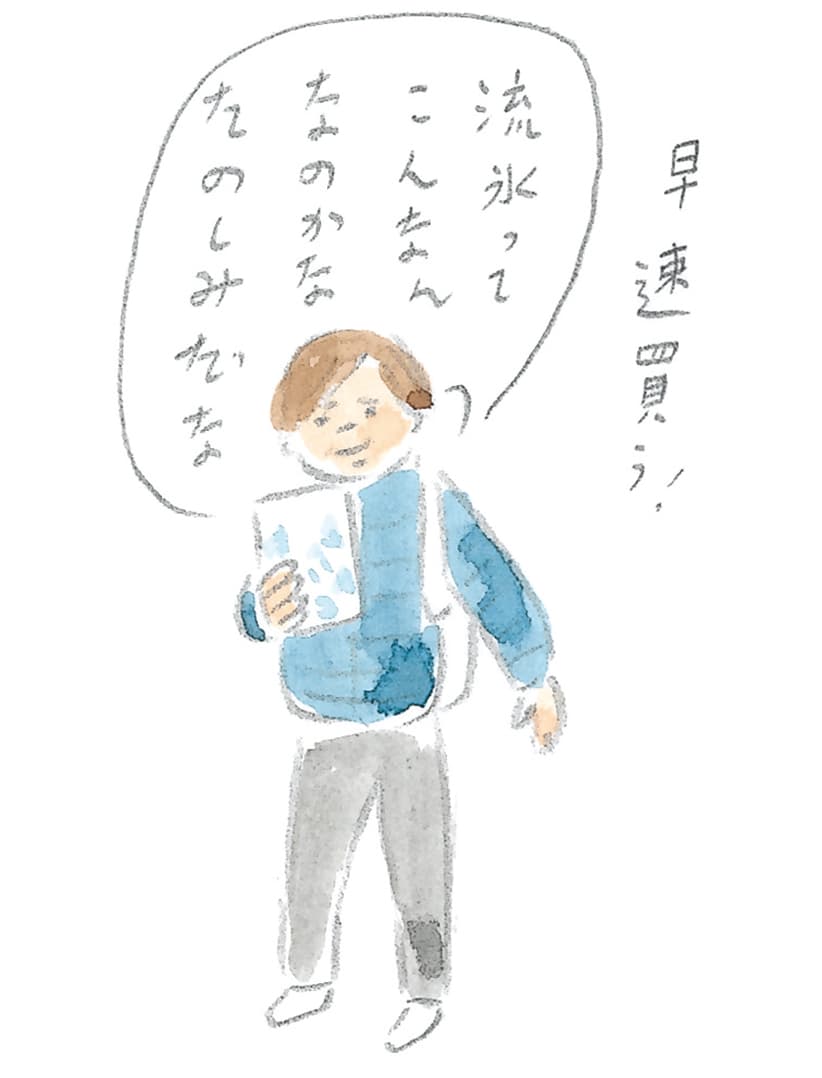 早速買う!
流氷って
こんなん
なのかな
たのしみだな